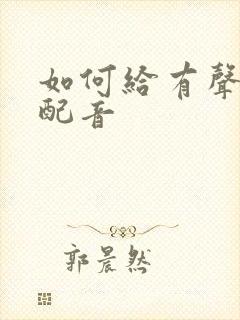 如何給有聲
配音
郭晨然